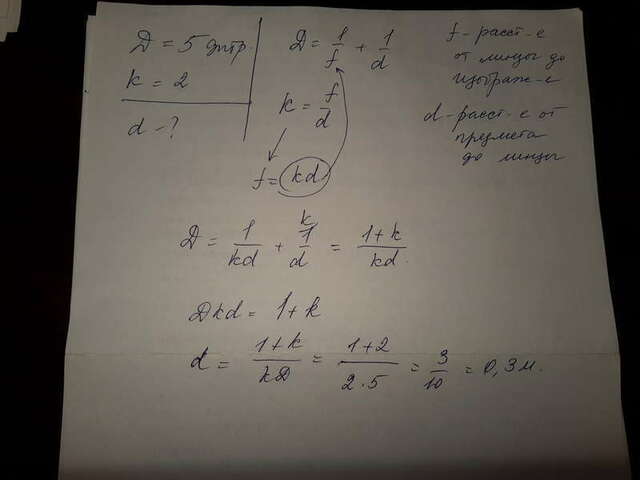 D = 5 дптр.
k = 2
d - ?
D = 1/f + 1/d
k = f/d
f = kd
f - расст-е
от линзы до
изображ-е
d - расст-е от
предмета
до линзы
D = 1/kd + k 1/d = 1+k/kd.
Dkd = 1+k
d = 1+k/kD = 1+2/2·5 = 3/10 = 0,3 м.